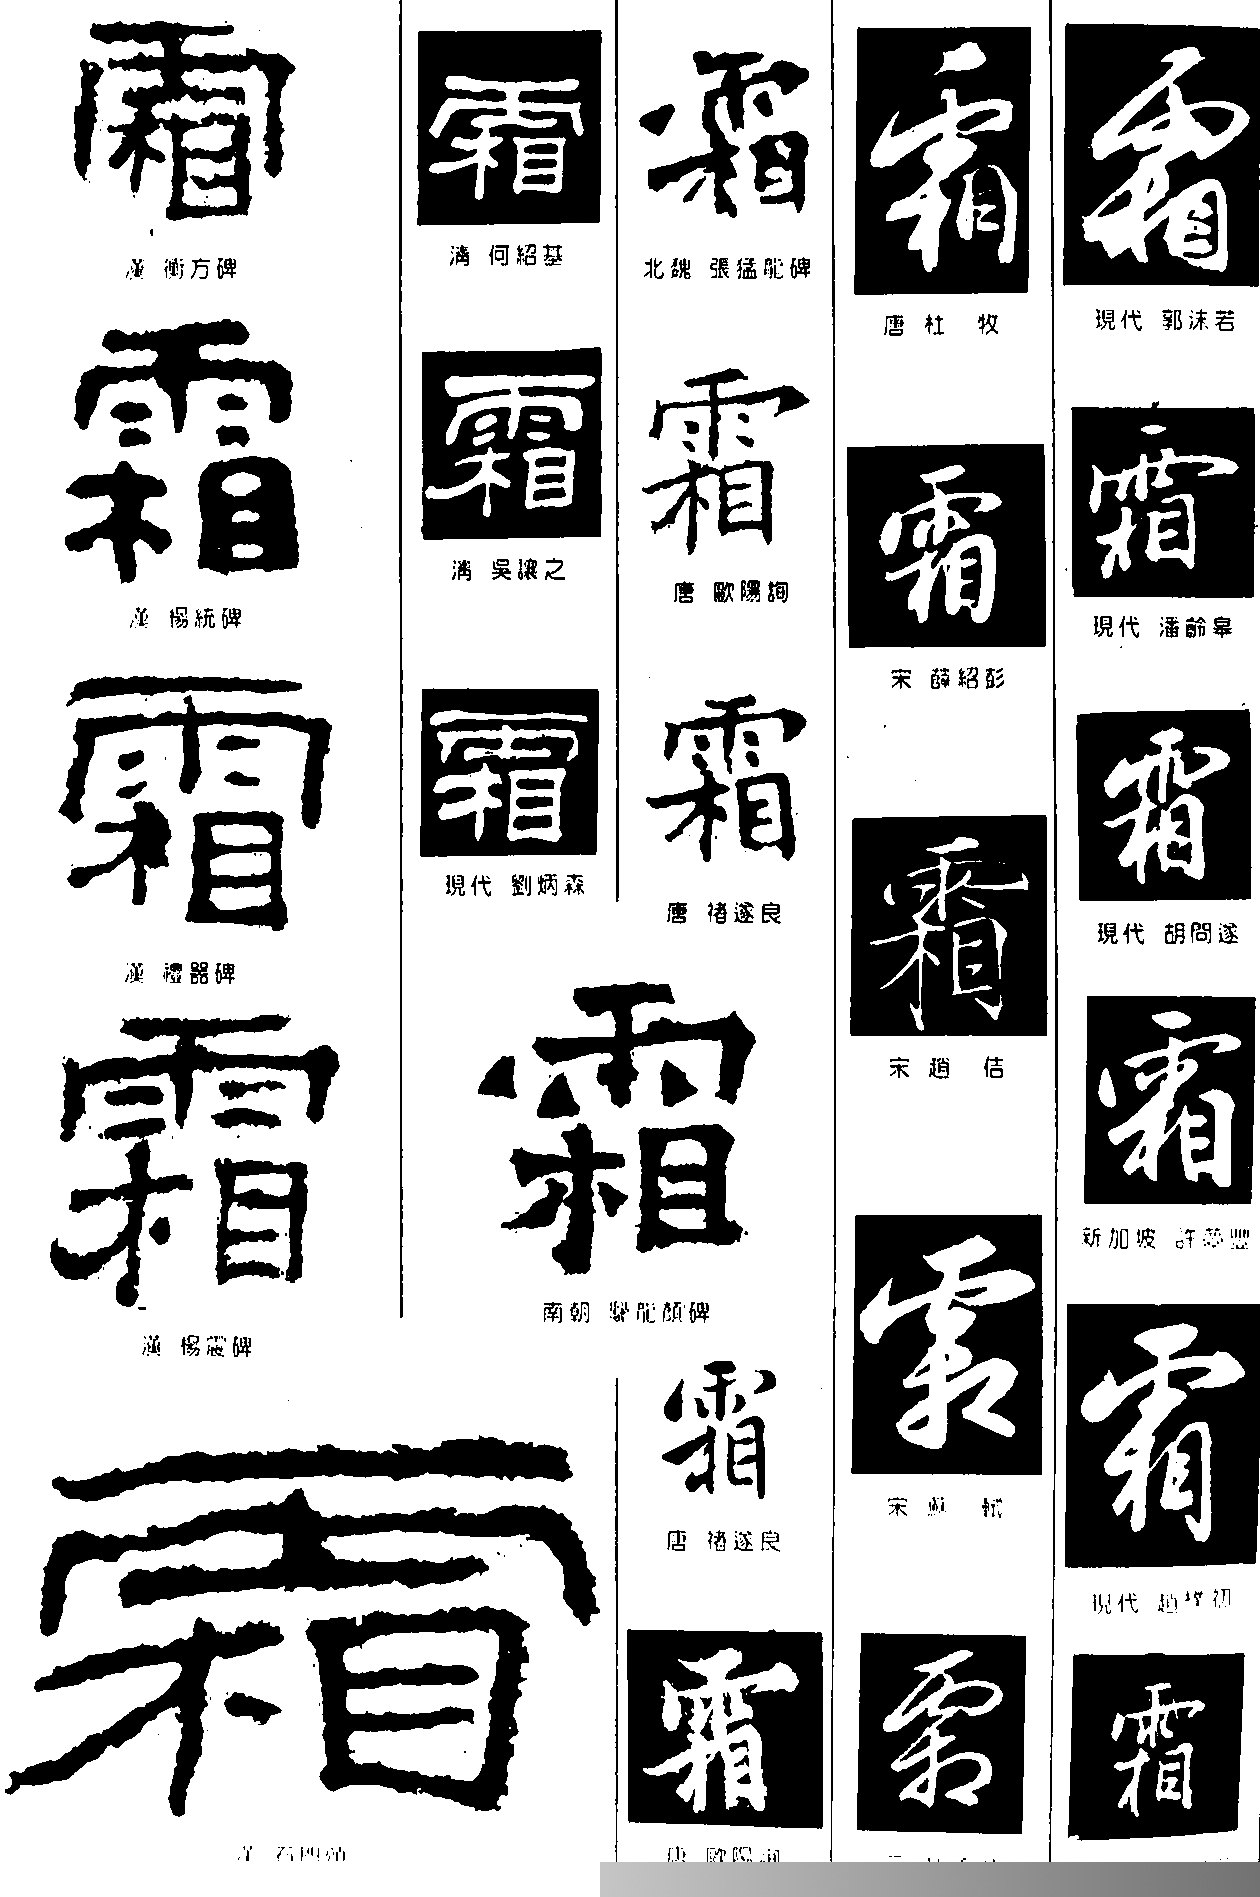 霜
漢 衡方碑
霜
漢 楊統碑
霜
漢 禮器碑
霜
漢 楊震碑
霜
漢 石門頌
霜
清 何紹基
霜
清 吳讓之
霜
現代 劉炳森
霜
南朝 爨龍顏碑
霜
北魏 張猛龍碑
霜
唐 歐陽詢
霜
唐 褚遂良
霜
唐 褚遂良
霜
唐 歐陽詢
霜
唐 杜 牧
霜
宋 薛紹彭
霜
宋 趙 佶
霜
宋 蘇 軾
霜
霜
現代 郭沫若
霜
現代 潘齡皋
霜
現代 胡問遂
霜
新加坡 許夢豐
霜
現代 趙樸初
霜